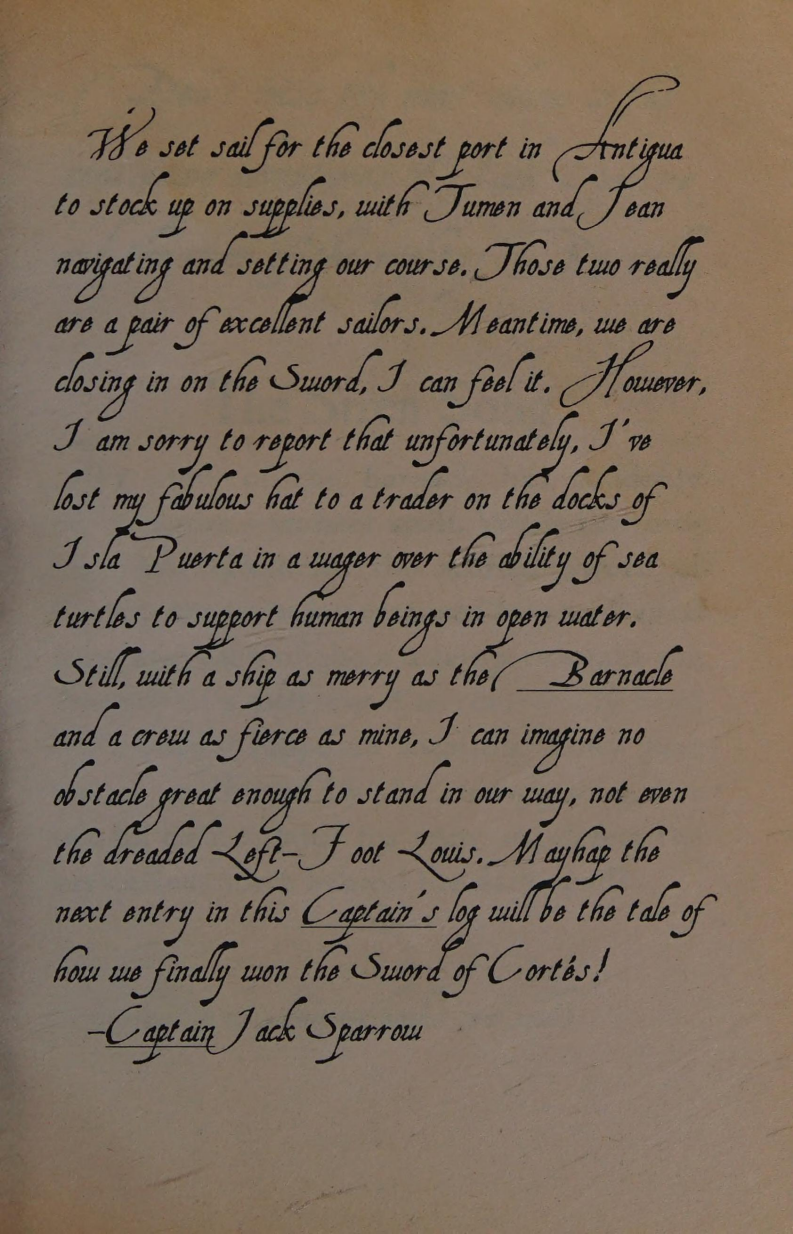 We set sail for the closest port in Antigua
to stock up on supplies, with Tumen and Jean
navigating and setting our course. Those two really
are a pair of excellent sailors. Meantime, we are
closing in on the Sword, I can feel it. However,
I am sorry to report that unfortunately, I've
lost my fabulous hat to a trader on the docks of
Isla Puerta in a wager over the ability of sea
turtles to support human beings in open water.
Still, with a ship as merry as the Barnacle
and a crew as fierce as mine, I can imagine no
obstacle great enough to stand in our way, not even
the dreaded Left-Foot Louis. Mayhap the
next entry in this Captain's log will be the tale of
how we finally won the Sword of Cortés!
–Captain Jack Sparrow